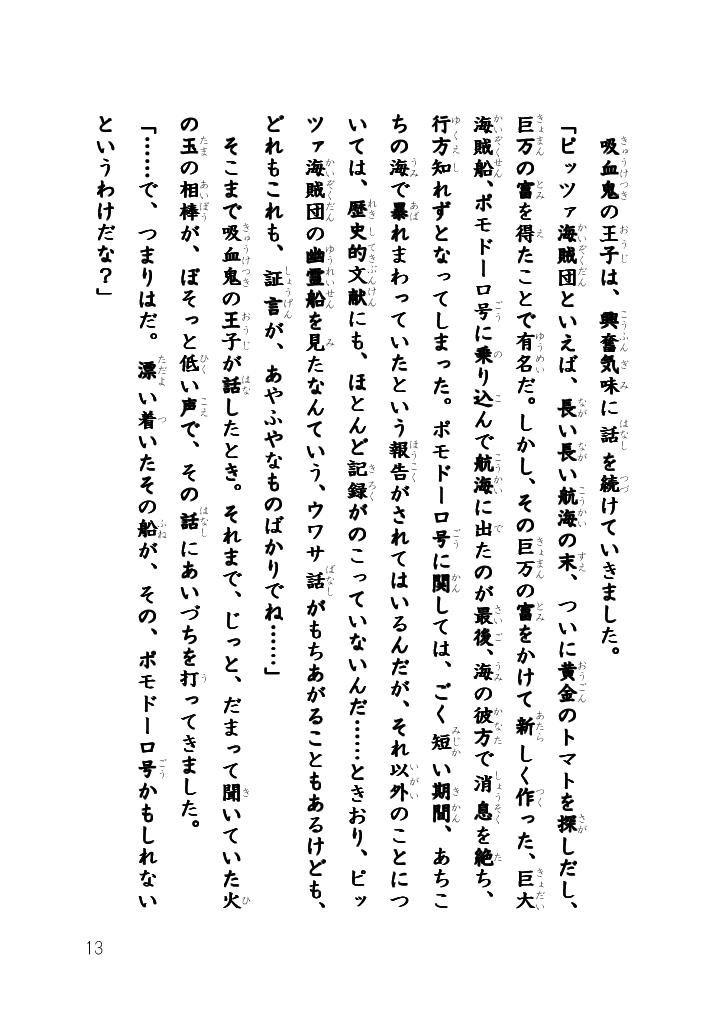 吸血鬼の王子は、興奮気味に話を続けていきました。
「ピッツァ海賊団といえば、長い長い航海の末、ついに黄金のトマトを探しだし、
巨万の富を得たことで有名だ。しかし、その巨万の富をかけて新しく作った、巨大
海賊船、ポモドーロ号に乗り込んで航海に出たのが最後、海の彼方で消息を絶ち、
行方知れずとなってしまった。ポモドーロ号に関しては、ごく短い期間、あちこ
ちの海で暴れまわっていたという報告がされてはいるんだが、それ以外のことにつ
いては、歴史的文献にも、ほとんど記録がのこっていないんだ……ときおり、ピッ
ツァ海賊団の幽霊船を見たなんていう、ウワサ話がもちあがることもあるけども、
どれもこれも、証言が、あやふやなものばかりでね……」
そこまで吸血鬼の王子が話したとき。それまで、じっと、だまって聞いていた火
の玉の相棒が、ぼそっと低い声で、その話にあいづちを打ってきました。
「……で、つまりはだ。漂い着いたその船が、その、ポモドーロ号かもしれない
というわけだな？」
13